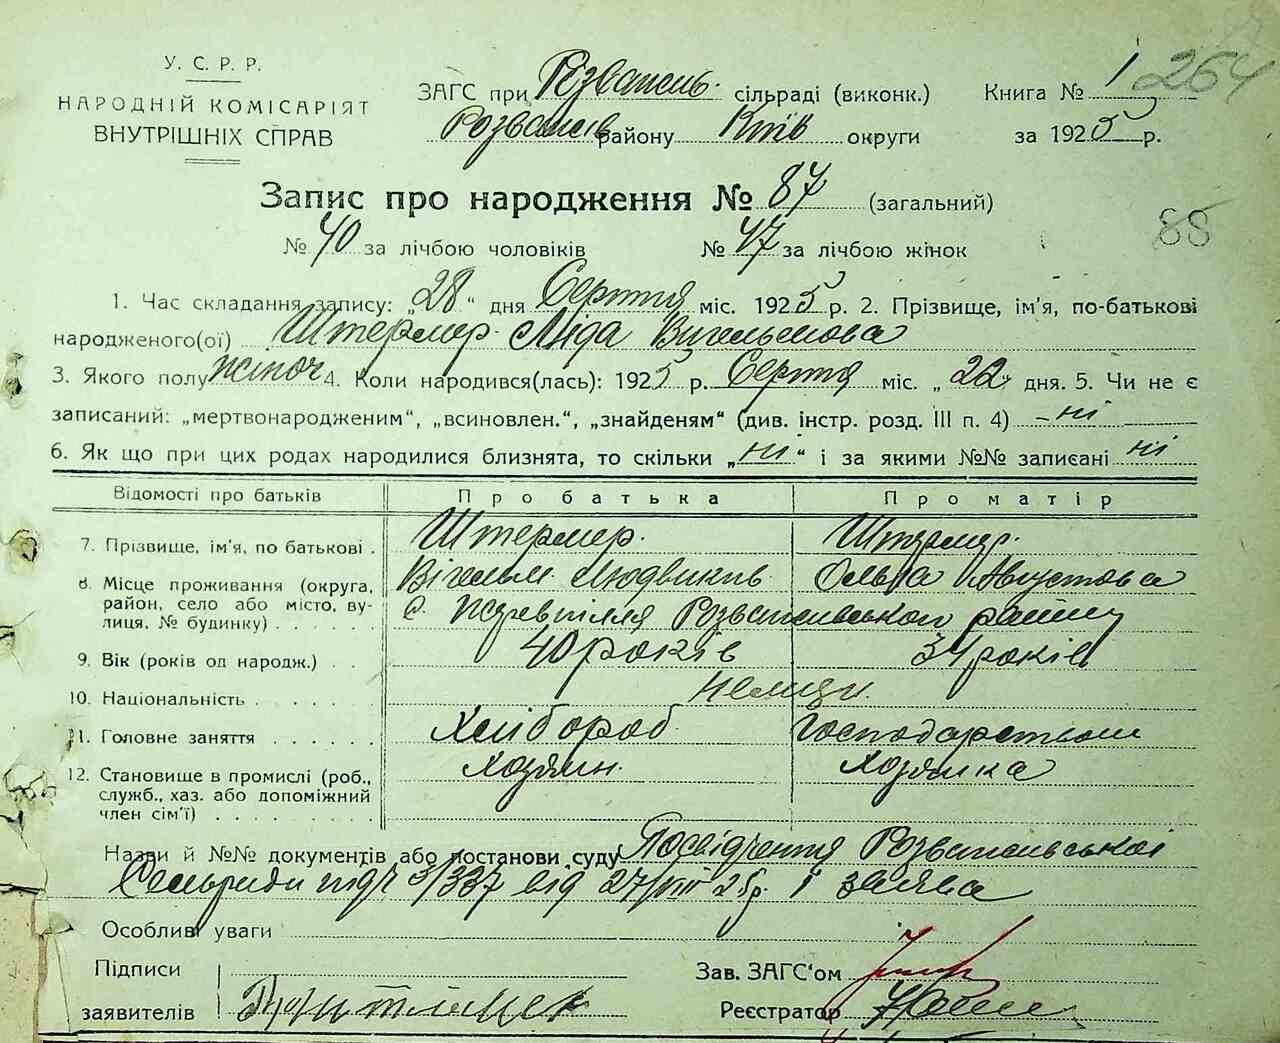 У. С. Р. Р.
НАРОДНІЙ КОМІСАРІЯТ
ВНУТРІШНІХ СПРАВ
ЗАГС при Розважев. сільраді (виконк.) Книга № 1 264
Розважів району Київ округи за 1925 р.
Запис про народження № 87 (загальний)
№ 40 за лічбою чоловіків № 47 за лічбою жінок 88
1. Час складання запису: „28“ дня Серпня міс. 1925 р. 2. Прізвище, ім'я, по-батькові
народженого(ої) Штермер Ліда Вігельмова
3. Якого полу жіноч 4. Коли народився(лась): 1925 р. Серпня міс. „22 дня. 5. Чи не є
записаний: „мертвонародженим“, „всиновлен.“, „знайденям“ (див. інстр. розд. III п. 4) – ні
6. Як що при цих родах народилися близнята, то скільки „ні“ і за якими №№ записані ні
Відомості про батьків Про батька Про матір
7. Прізвище, ім'я, по батькові . Штермер. Штермер.
Вігельм Людвиків Ольга Августова
8. Місце проживання (округа,
район, село або місто, ву-
лиця, № будинку) . . . . . с. Розважівського району
9. Вік (років од народж.) . . 40 років 34 років
10. Національність . . . . . . німці
11. Головне заняття . . . . . . Хлібороб Господарством
12. Становище в промислі (роб.,
служб., хаз. або допоміжний
член сім'ї) . . . . . . . . . хозяин. хозяйка
Назви й №№ документів або постанови суду Посвідчення Розважівської
Сельради під ч 3/337 від 27/VIII 25р. і заява
Особливі уваги
Підписи
заявителів
Зав. ЗАГС'ом
Реєстратор